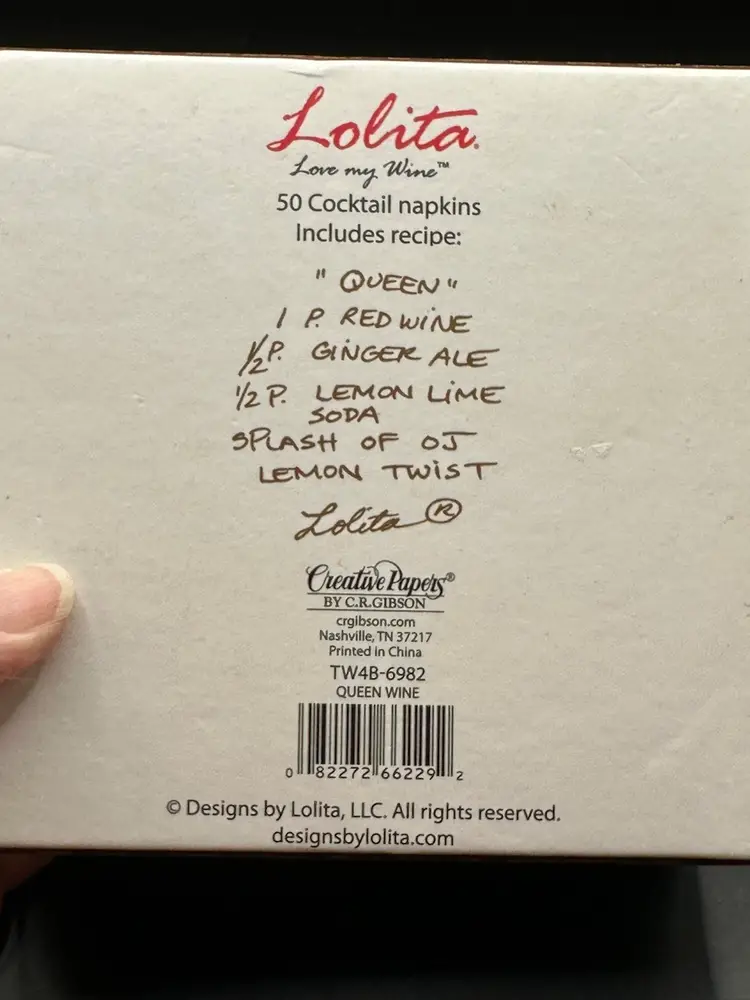 Lolita.
Love my Wine™
50 Cocktail napkins
Includes recipe:
"QUEEN"
1 P. RED WINE
1/2 P. GINGER ALE
1/2 P. LEMON LIME
SODA
SPLASH OF OJ
LEMON TWIST
Lolita ®
Creative Papers®
BY C.R.GIBSON
crgibson.com
Nashville, TN 37217
Printed in China
TW4B-6982
QUEEN WINE
0 82272 66229 2
© Designs by Lolita, LLC. All rights reserved.
designsbylolita.com